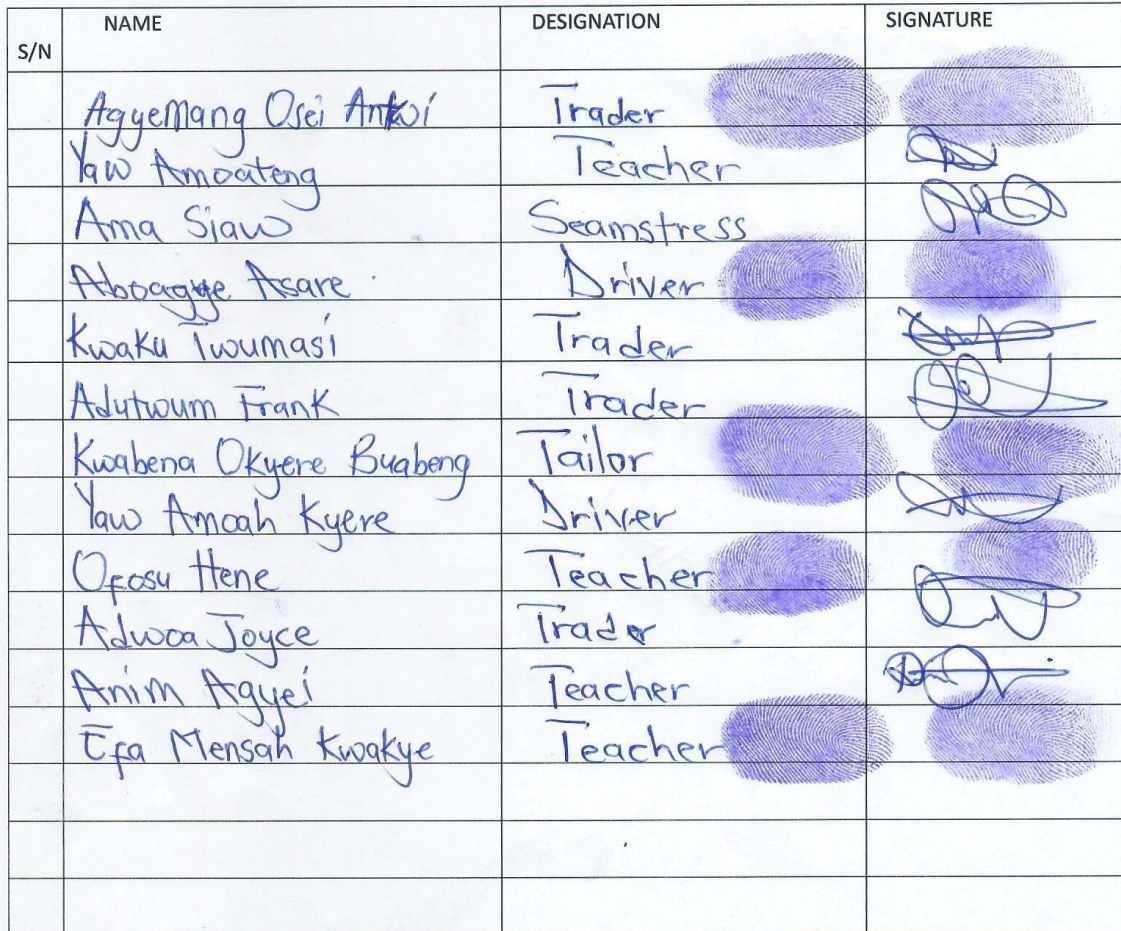 S/N NAME DESIGNATION SIGNATURE
Agyemang Osei Antwi Trader
Yaw Amoateng Teacher
Ama Siaw Seamstress
Aboagye Asare Driver
Kwaku Twumasi Trader
Adutwum Frank Trader
Kwabena Okyere Buabeng Tailor
Yaw Amoah Kyere Driver
Ofosu Hene Teacher
Adwoa Joyce Trader
Anim Agyei Teacher
Efa Mensah Kwakye Teacher